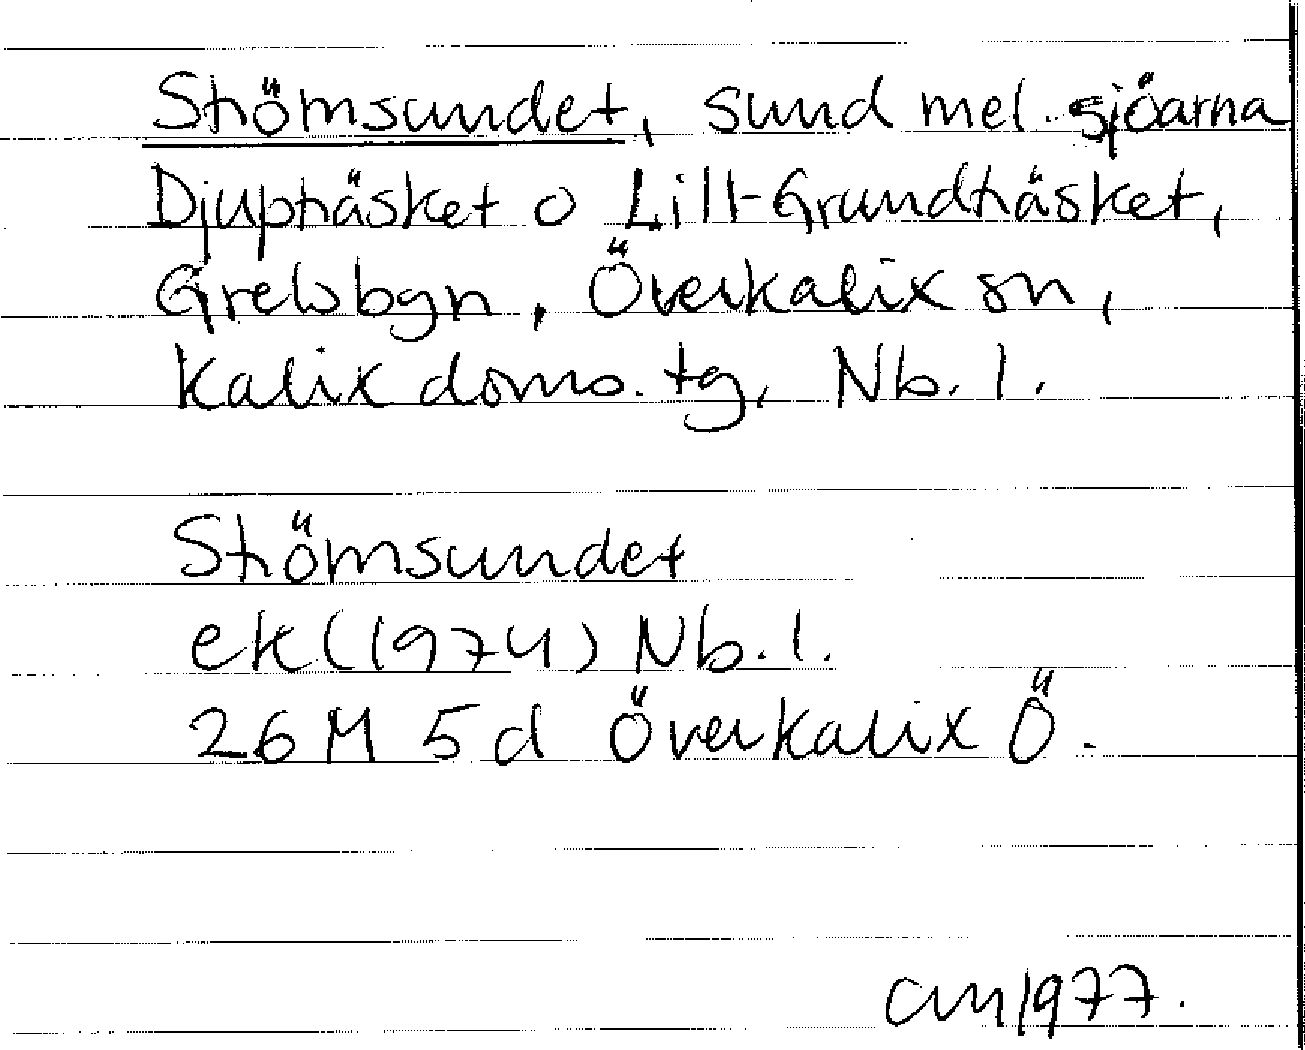 Strömsundet, sund mel. sjöarna
Djupträsket o Lill-Grundträsket,
Grelsbyn, Överkalix sn,
Kalix doms. tg, Nb. l.
Strömsundet
ek (1974) Nb. l.
26 M 5 d Överkalix Ö.
1977.